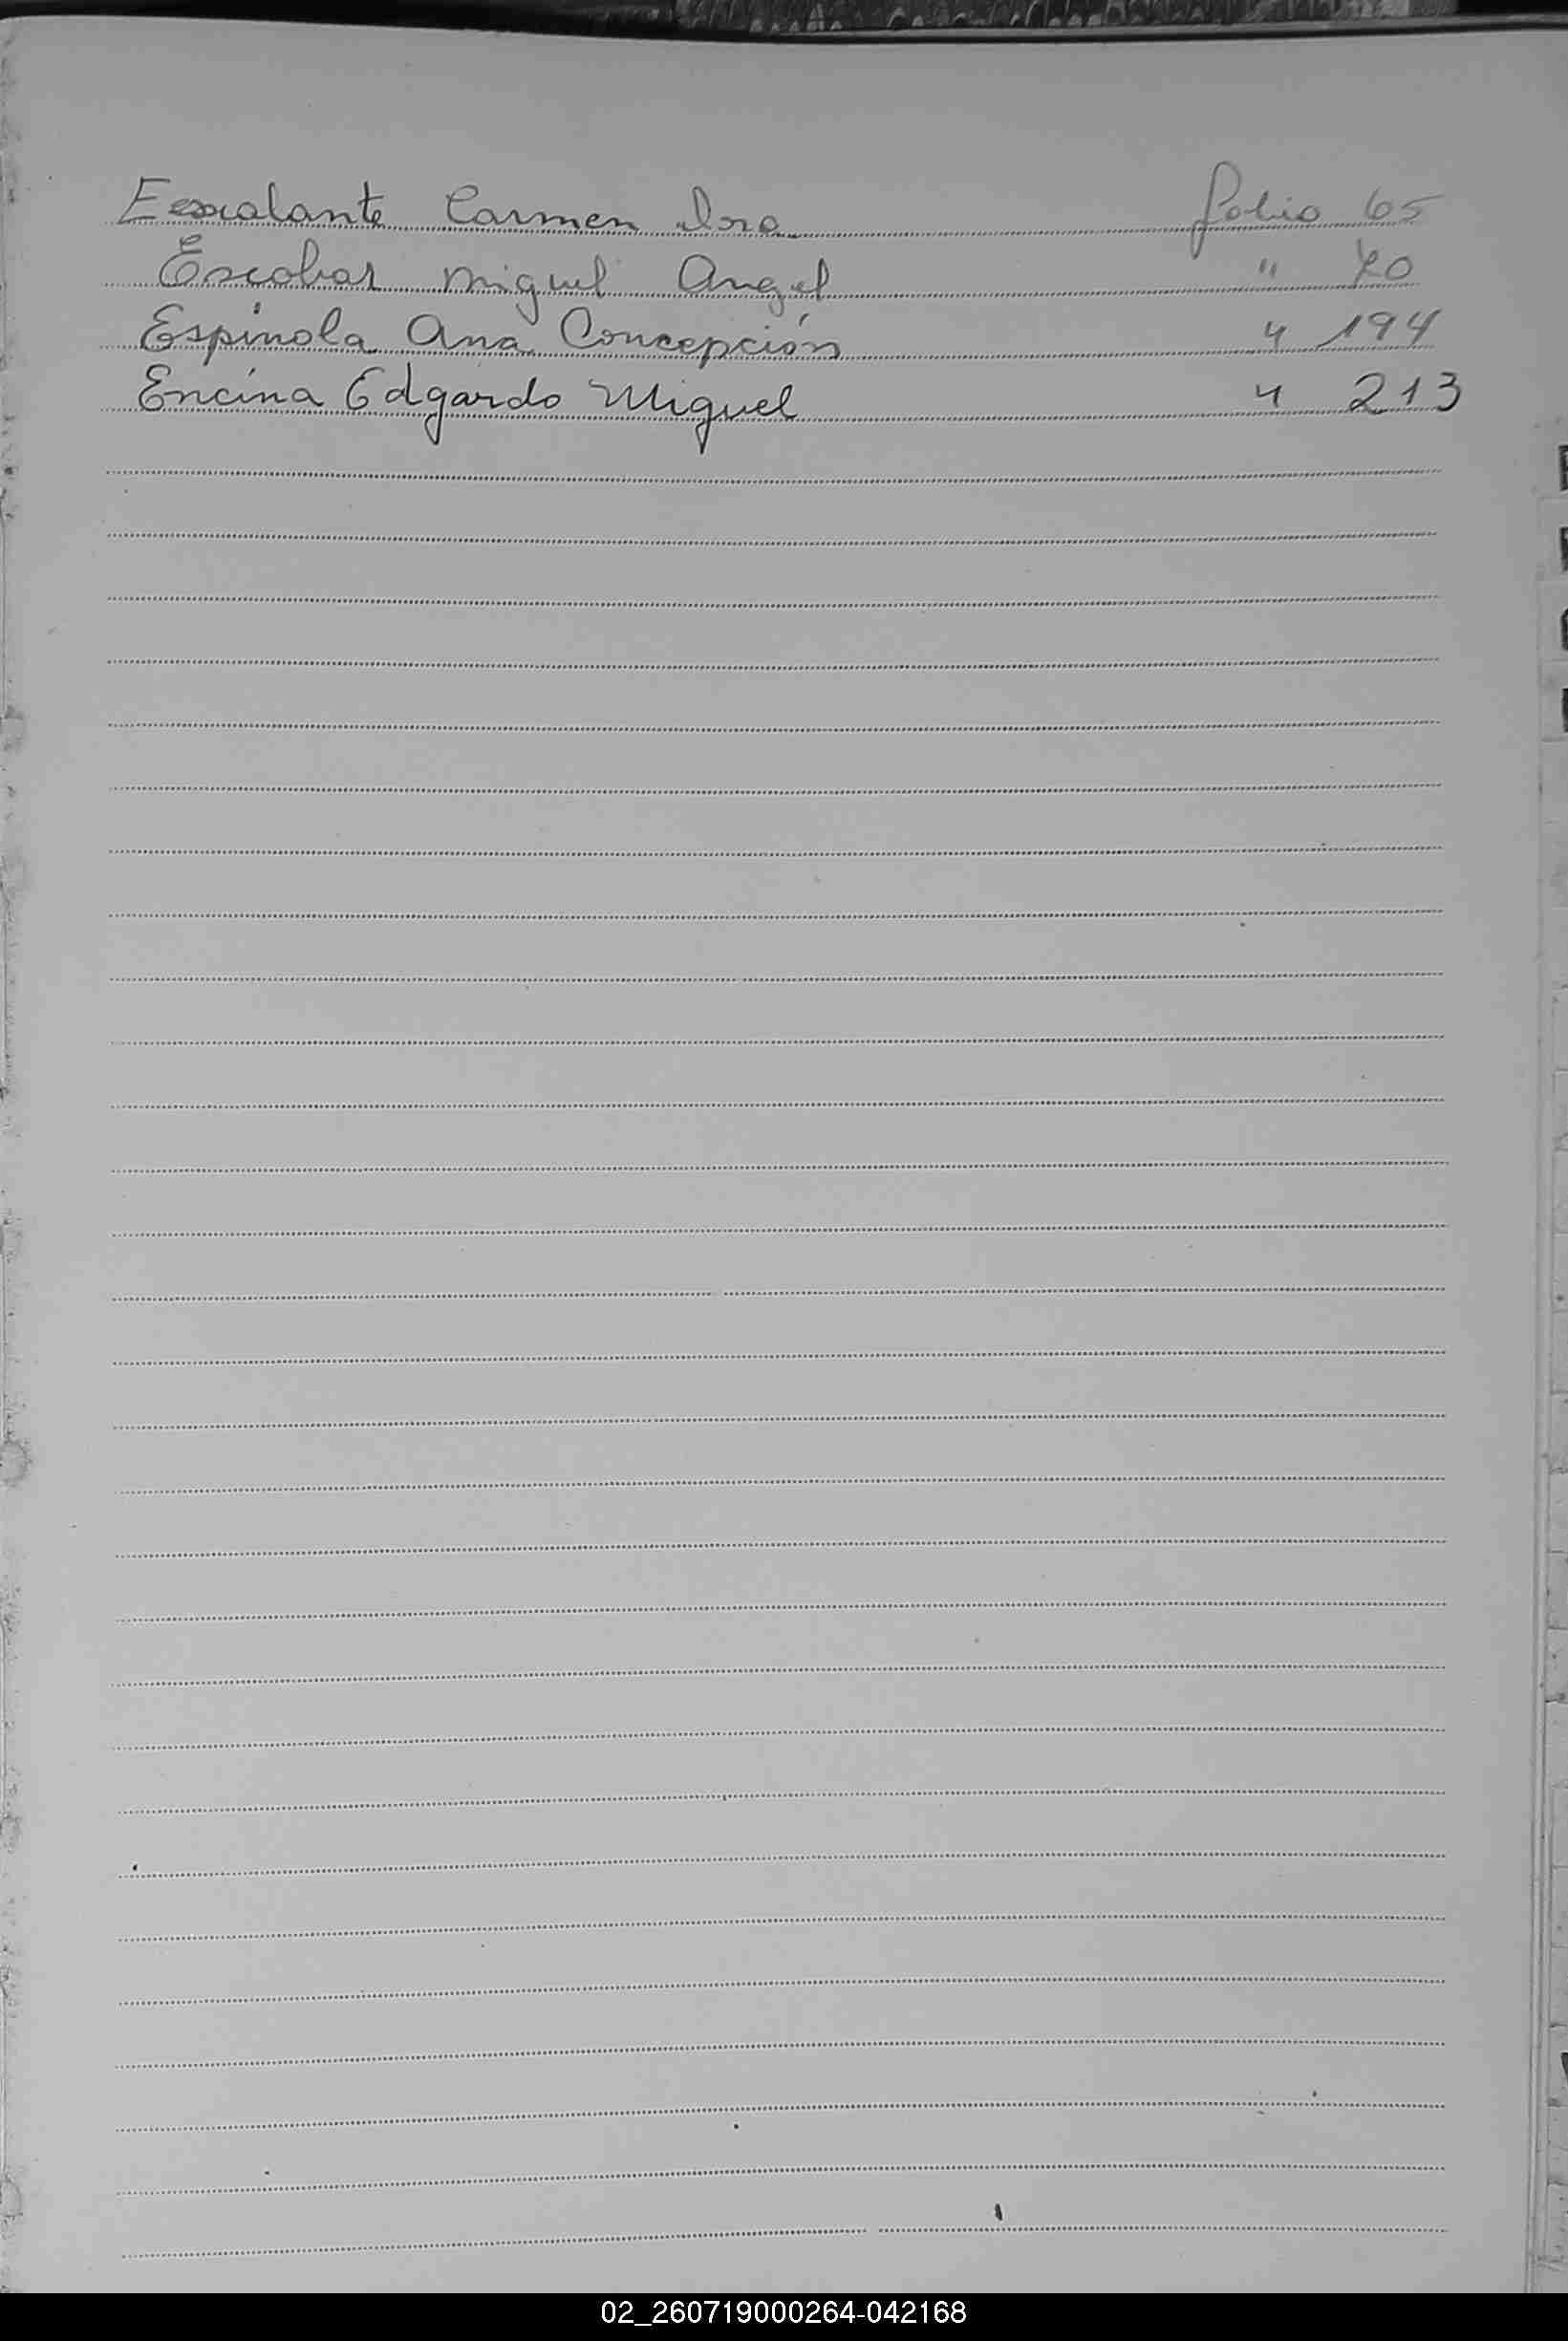 Escalante Carmen folio 65
Escobar Miguel Angel " 70
Espínola Ana Concepción " 194
Encina Edgardo Miguel " 213
02_260719000264-042168